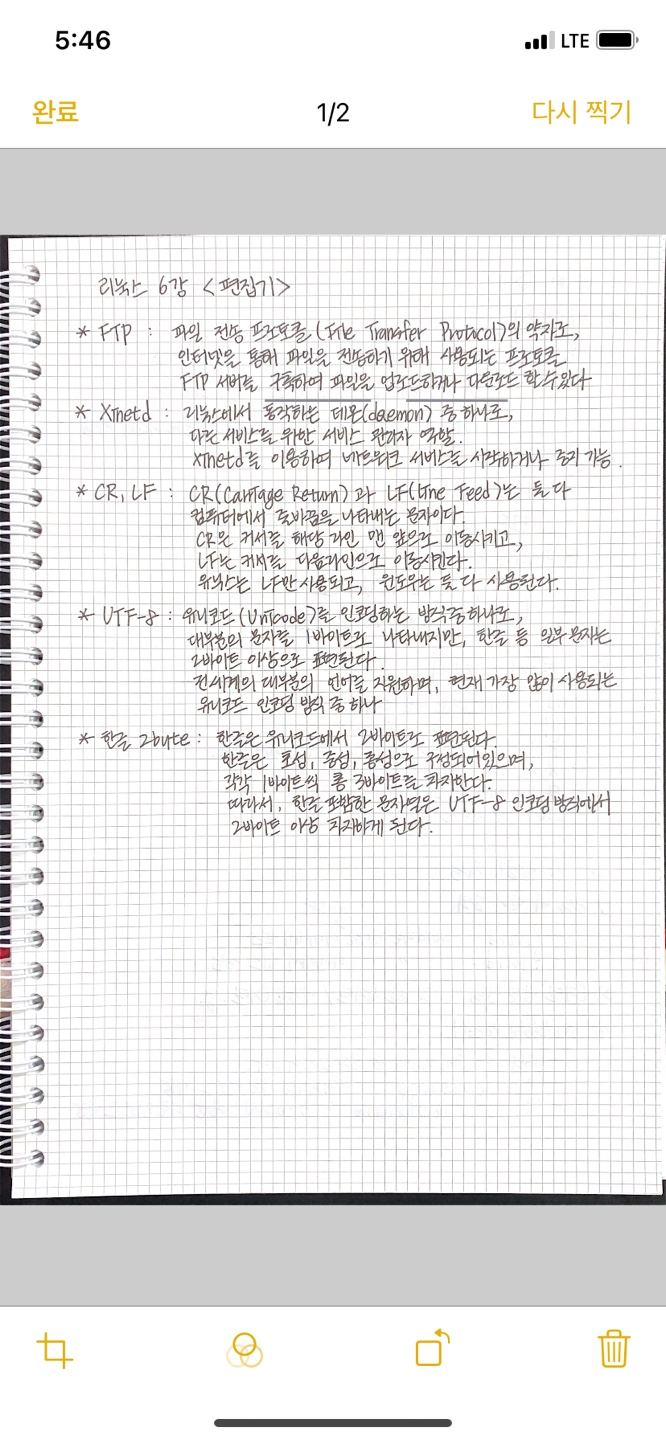 5:46
LTE
완료
1/2
다시 찍기
리눅스 6강 <편집기>
* FTP : 파일 전송 프로토콜(File Transfer Protocol)의 약자로,
인터넷을 통해 파일을 전송하기 위해 사용되는 프로토콜
FTP 서버를 구축하여 파일을 업로드하거나 다운로드 할 수 있다
* Xinetd : 리눅스에서 동작하는 데몬(daemon) 중 하나로,
다른 서비스를 위한 서비스 관리자 역할.
Xinetd를 이용하여 네트워크 서비스를 시작하거나 중지 가능.
* CR, LF : CR(Carriage Return)과 LF(Line Feed)는 둘 다
컴퓨터에서 줄바꿈을 나타내는 문자이다.
CR은 커서를 해당 라인 맨 앞으로 이동시키고,
LF는 커서를 다음라인으로 이동시킨다.
유닉스는 LF만 사용되고, 윈도우는 둘 다 사용된다.
* UTF-8 : 유니코드(Unicode)를 인코딩하는 방식 중 하나로,
대부분의 문자를 1바이트로 나타내지만, 한글 등 일부 문자는
2바이트 이상으로 표현된다.
전세계의 대부분의 언어를 지원하며, 현재 가장 많이 사용되는
유니코드 인코딩 방식 중 하나
* 한글 2byte : 한글은 유니코드에서 2바이트로 표현된다
한글은 초성, 중성, 종성으로 구성되어있으며,
각각 1바이트씩 총 3바이트를 차지한다.
따라서, 한글 포함한 문자열은 UTF-8 인코딩 방식에서
2바이트 이상 차지하게 된다.